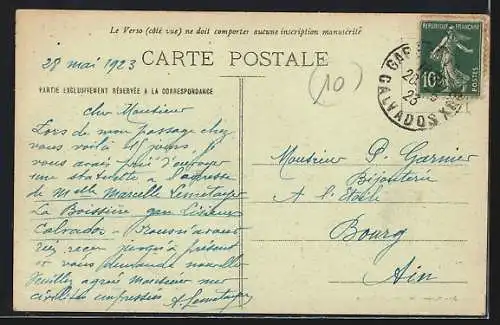 Le Verso (côté vue) ne doit comporter aucune inscription manuscrite
CARTE POSTALE
28 mai 1923
PARTIE EXCLUSIVEMENT RÉSERVÉE A LA CORRESPONDANCE
(10)
cher Monsieur
Lors de mon passage chez
vous voilà 15 jours, je
vous avais prié d'envoyer
une statuette à l'adresse
de Melle Marcelle Lemétayer
La Boissière par Lisieux
Calvados
reçu jusqu'à présent
je vous demande nouvelle
Veuillez agréer Monsieur mes
civilités empressées A. Lemétayer
Monsieur P. Garnier
Bijouterie
A l'Etoile
Bourg
Ain
REPUBLIQUE FRANÇAISE
10c
POSTES
GARE
CALVADOS
23